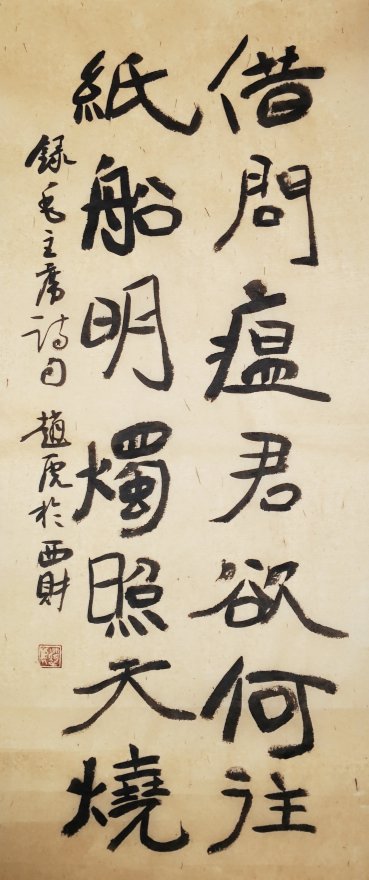 借問瘟君欲何往
紙船明燭照天燒
録毛主席詩句 趙虎於西財